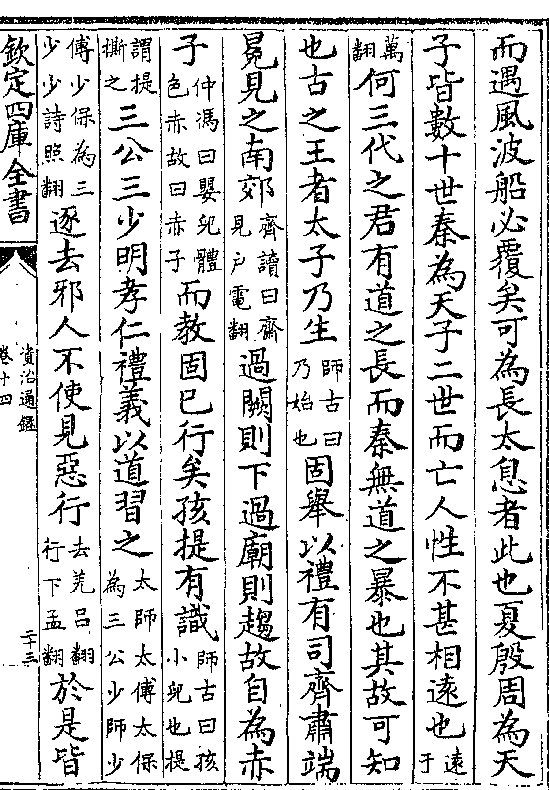 而遇風波船必覆矣可為長太息者此也夏殷周為天
子皆數十世秦為天子二世而亡人性不甚相遠也遠于
萬翻何三代之君有道之長而秦無道之暴也其故可知
也古之王者太子乃生師古曰乃始也固舉以禮有司齊肅端
冕見之南郊齊讀曰齋見户電翻過闕則下過廟則趨故自為赤
子仲馮曰嬰兒體色赤故曰赤子而教固已行矣孩提有識師古曰孩小兒也提
謂提撕之三公三少明孝仁禮義以道習之太師太傅太保為三公少師少
傅少保為三少少詩照翻逐去邪人不使見惡行去羌呂翻行下孟翻於是皆
欽定四庫全書
資治通鑑
卷十四
二十三